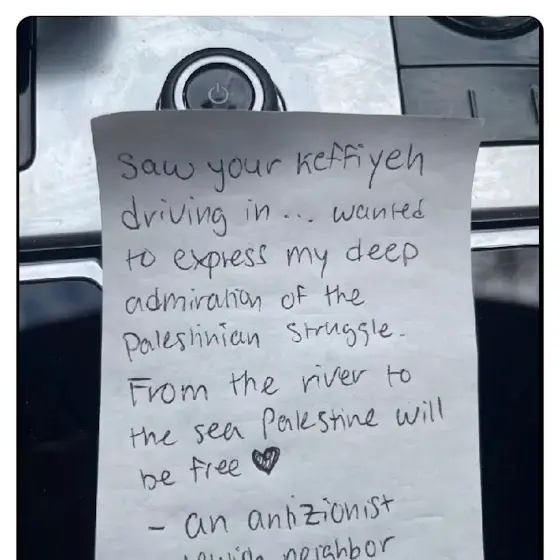 Saw your keffiyeh
driving in... wanted
to express my deep
admiration of the
Palestinian struggle.
From the river to
the sea Palestine will
be free ♥
- an antizionist
jewish neighbor